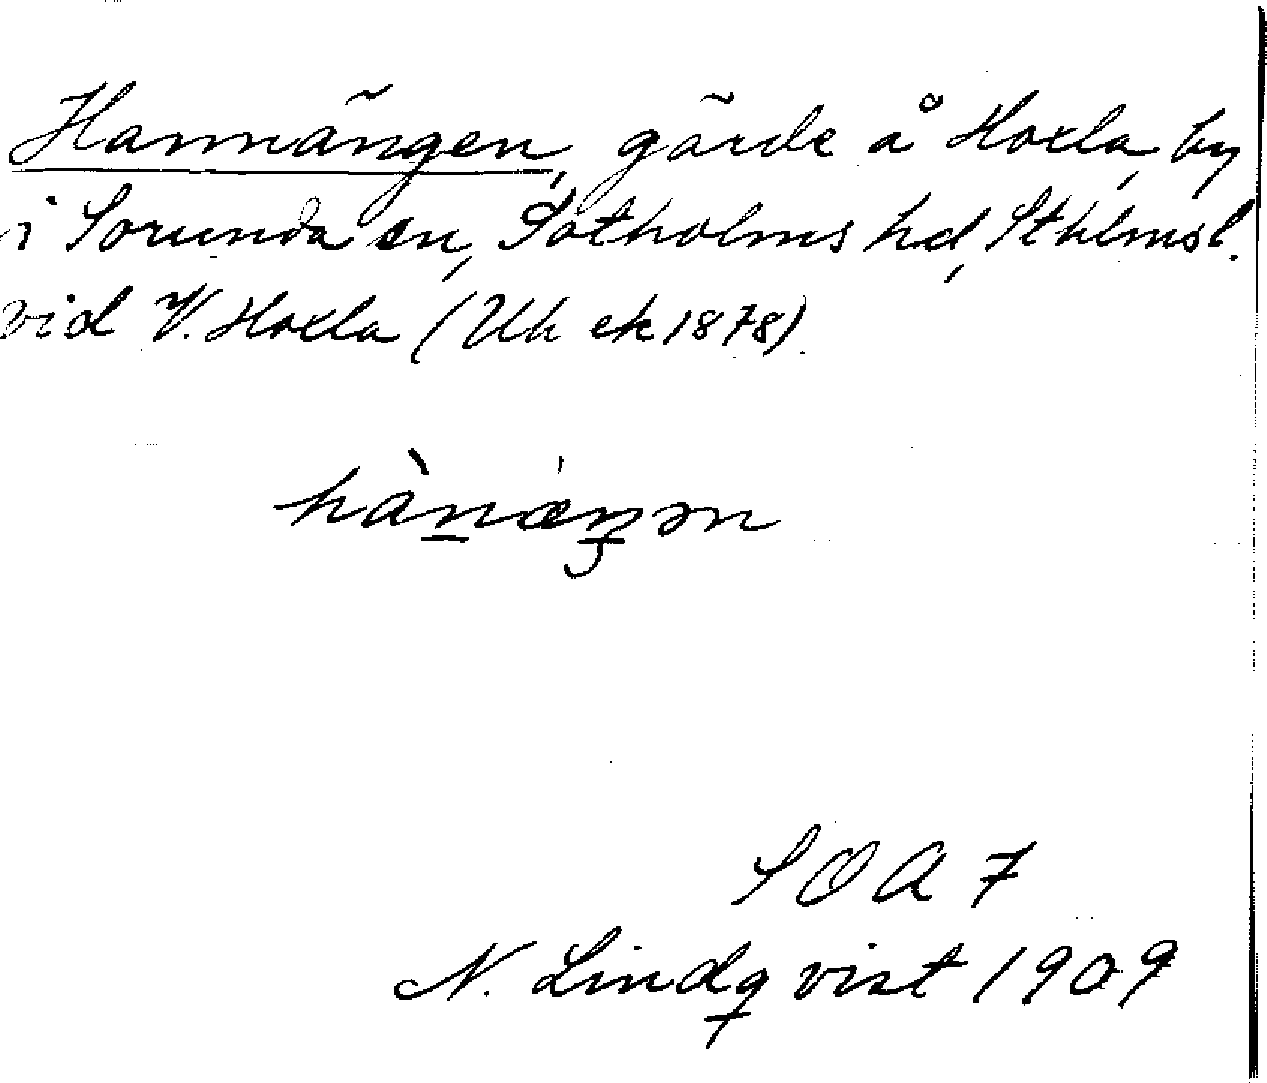 Hannängen, gärde å Hoxla, by
i Sorunda sn, Sotholms hd, Sthlmsl.
vid V. Hoxla (Uh ek 1878)
hànæŋən
SOA 7
N. Lindqvist 1909